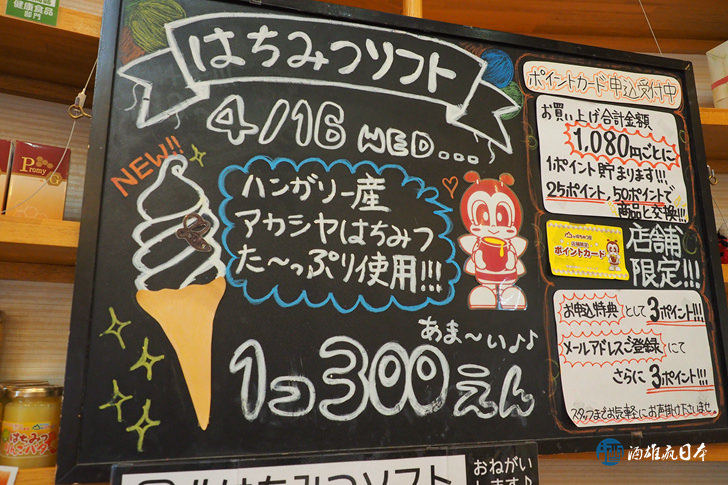 健康食品
部門
はちみつソフト
4/16 WED...
NEW!!
ハンガリー産
アカシヤはちみつ
た〜っぷり使用!!!
あま〜い♪♪
1つ300えん
ポイントカード申込受付中
お買い上げ合計金額
1,080円ごとに
1ポイント貯まります!!!
25ポイント、50ポイントで
商品と交換!!!
ポイントカード
店舗
限定!!!
お申込特典として3ポイント!!!
メールアドレスご登録にて
さらに3ポイント!!!
スタッフまでお気軽にお声掛け下さいませ。
Promy
はちみつ
りんごバター
はちみつソフト
おねがい
します♪
酒雄瘋日本